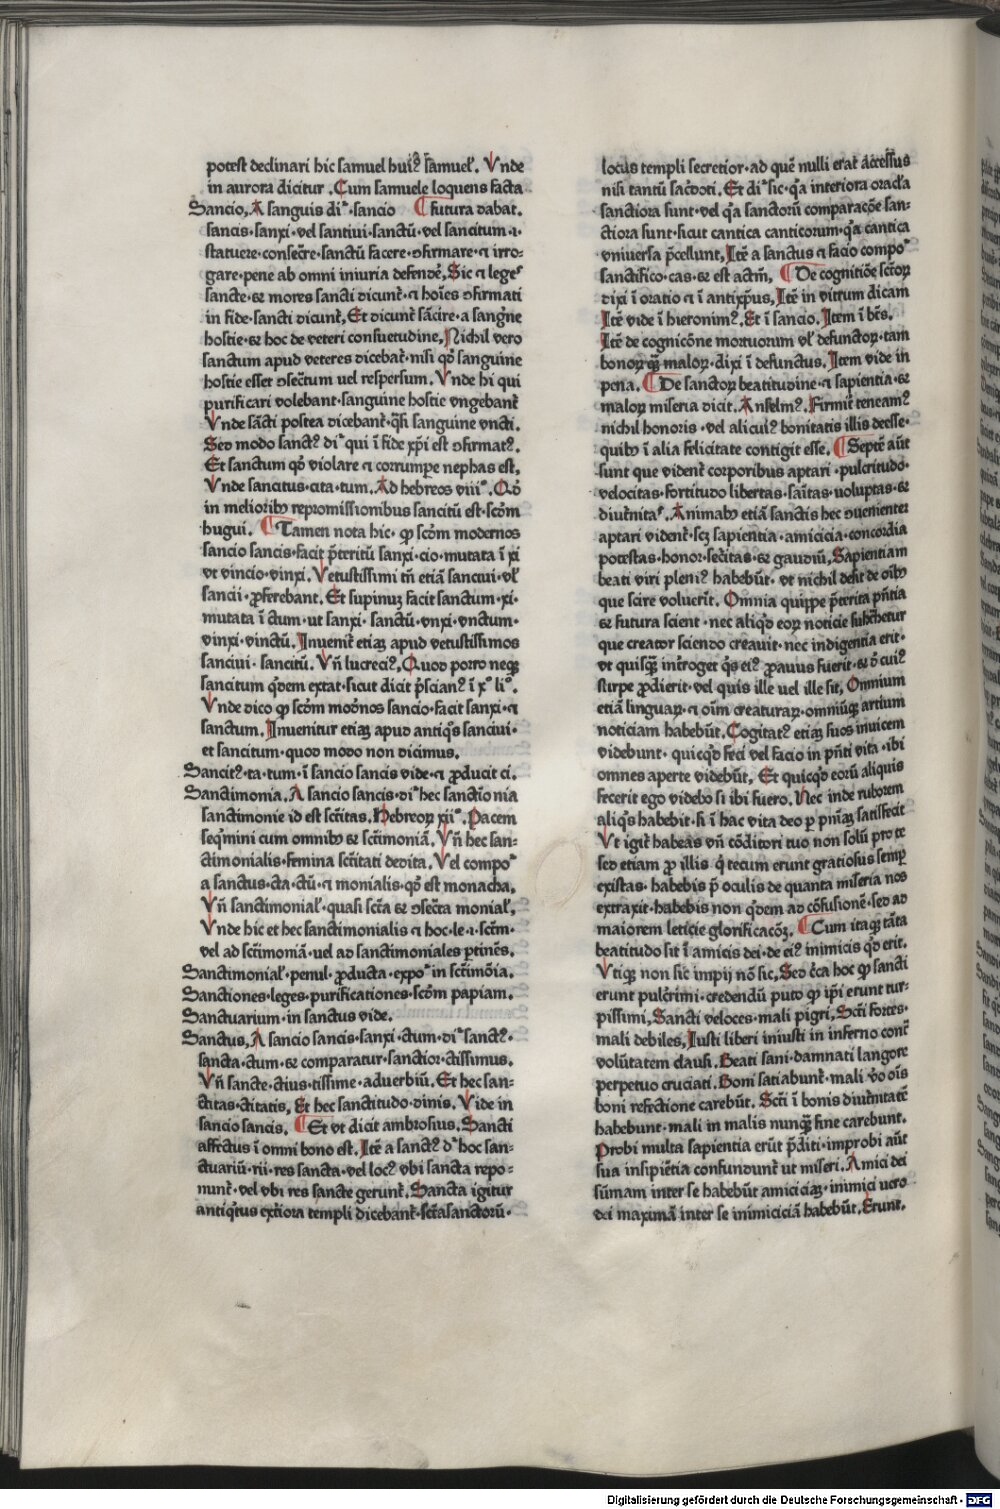 potest declinari hic samuel huiꝰ samuel̕. Vnde
in aurora dicitur. Cum samuele loquens facta
Sancio, A sanguis dꝛ̄·sancio ¶ futura dabat.
sancis·sanxi·vel santiui·sanctū·vel sancitum·i·
statuere·consecr̄e·sanctū facere·ↄfirmare·⁊ irro-
gare·pene ab omni iniuria defendē, Sic ⁊ leges
sancte·⁊ mores sancti dicunt̄·⁊ hoīes ↄfirmati
in fide·sancti dicunt̄, Et dicunt̄ sācire·a sangn̄e
hostie·⁊ hoc de veteri consuetudine, Nichil vero
sanctum apud veteres dicebat̄·nisi qđ sanguine
hostie esset ↄsec̄tum uel respersum. Vnde hi qui
purificari volebant·sanguine hostie vngebant̄
Vnde sāti postea dicebant̄·q̄si sanguine vncti.
Sed modo sanctꝰ dꝛ̄ qui ī fide xp̄i est ↄfirmatꝰ.
Et sanctum qđ violare ⁊ corrumpe nephas est,
Vnde sancitus·cita·tum. Ad hebreos viiiͦ. Qđ
in meliorib; repromissionibus sancitū est·scđm
hugui. ¶ Tamen nota hic·ꝙ scđm modernos
sancio sancis·facit p̄teritū sanxi·cio·mutata ī xi
vt vincio·vinxi, Vetustissimi tn̄ etiā sanciui·vl̕
sancii·ꝓferebant. Et supinuꝫ facit sanctum·xi·
mutata ī ctum·ut sanxi·sanctū·vnxi·vnctum·
vinxi·vinctū. Inuenit̄ etiaꝫ apud vetustissimos
sanciui·sancitū. Vn̄ lucreciꝰ, Quod porro neqꝫ
sancitum q̄dem extat·sicut dicit p̄scianꝰ ī xͦ liͦ.
Vnde dico ꝙ scđm mođnos sancio·facit sanxi·⁊
sanctum. Inuenitur etiaꝫ apud antiq̄s sanciui·
et sancitum·quod modo non dicimus.
Sancitꝰ·ta·tum·ī sancio sancis vide·⁊ ꝓducit ci.
Sanctimonia. A sancio sancis·dꝛ̄ hec sanctīonia
sanctimonie id est sc̄titas. Hebreoꝝ xiiͦ. Pacem
seq̄mini cum omnib; ⁊ sc̄timoniā. Vn̄ hec san-
ctimonialis·femina sc̄titati dedita. Vel compoꝛ
a sanctus·cta·ctū·⁊ monialis·qđ est monacha,
Vn̄ sanctimonial̕·quasi sc̄ta ⁊ ↄsec̄ta monial̕,
Vnde hic et hec sanctimonialis ⁊ hoc·le·ī·sc̄tm·
vel ad sc̄timoniā·uel ad sanctimoniales ꝑtinēs.
Sanctimonial̕·penul·ꝓducta·expoꝛ in sc̄timōia.
Sanctiones·leges·purificationes·scđm papiam.
Sanctuarium·in sanctus vide.
Sanctus, A sancio sancis·sanxi·ctum·dꝛ̄ sanctꝰ·
sancta·ctum·⁊ comparatur·sanctior·ctissimus.
Vn̄ sancte·ctius·tissime·aduerbiū. Et hec san-
ctitas·ctitatis, Et hec sanctitudo·dinis. Vide in
sancio sancis. ¶ Et vt dicit ambrosius. Sancti
affectus ī omni bono est. Itē a sanctꝰ dꝛ̄ hoc san-
ctuariū·rii·res sancta·vel locꝰ vbi sancta repo-
nunt̄·vel vbi res sancte gerunt̄. Sancta igitur
antiq̄tus ext̄iora templi dicebant̄·sc̄tasanctorū·
locus templi secretior·ad quē nulli erat accessus
nisi tantū sac̄doti. Et dꝛ̄ sic·qꝛ interiora oracl̕a
sanctiora sunt·vel qꝛ sanctorū comparacōe san-
ctiora sunt·sicut cantica canticorum·qꝛ cantica
vniuersa p̄cellunt, Itē a sanctus ⁊ facio compoꝛ
sanctifico·cas·⁊ est actm̄, ¶ De cognitiōe sc̄toꝝ
dixi ī oratio ⁊ ī antixp̄us, Itē in vitrum dicam
Itē vide ī hieronimꝰ. Et ī sancio. Item ī bēs.
Itē de cognicōne mortuorum vl̕ defunctoꝝ·tam
bonoꝝ qꝫ maloꝝ·dixi ī defunctus. Item vide in
pena. ¶ De sanctoꝝ beatitudine·⁊ sapientia·⁊
maloꝝ miseria dicit. Anselmꝰ. Firmit̄ teneamꝰ
nichil honoris·vel alicuiꝰ bonitatis illis deesse·
quib; ī alia felicitate contigit esse. ¶ Septē aūt
sunt que vident̄ corporibus aptari·pulcritudo·
velocitas·fortitudo libertas·saītas·uoluptas·⁊
diut̄nitas. Animab; etiā sanctis hec ↄuenienter
aptari vident̄·scꝫ sapientia·amicicia·concordia
potestas·honor·sec̄itas·⁊ gaudiū, Sapientiam
beati viri pleniꝰ habebūt·vt nichil desit de oīb;
que scire voluerīt. Omnia quippe p̄terita p̄ntia
⁊ futura scient·nec aliqđ eoꝝ noticie subt̄hetur
que creator sciendo creauit·nec indigentia erit·
vt quisqꝫ int̄roget q̄s eiꝰ ꝓauus fuerit·⁊ đ cuiꝰ
stirpe ꝓdierit·vel quis ille uel ille sit, Omnium
etiā linguaꝝ·⁊ oīm creaturaꝝ·omniūqꝫ artium
noticiam habebūt. Cogitatꝰ etiaꝫ suos inuicem
videbunt·quicqđ feci vel facio in p̄nti vita·ibi
omnes aperte videbūt, Et quicqđ eorū aliquis
fecerit ego videbo si ibi fuero. Nec inde ruborem
aliq̄s habebit·si ī hac vita deo ꝑ pn̄iaꝫ satisfecit
Vt igit̄ habeas vn̄ cōditori tuo non solū pro te
sed etiam ꝓ illis q̄ tecum erunt gratiosus semꝑ
existas·habebis p̄ oculis de quanta miseria nos
extraxit·habebis non q̄dem ad cōfusionē·sed ad
maiorem leticie glorificacōꝫ. ¶ Cum itaqꝫ tāta
beatitudo sit ī amicis dei·de eiꝰ inimicis qđ erit.
Vtiqꝫ non sic impij nō sic, Sed ec̄a hoc ꝙ sancti
erunt pulcrimi·credendū puto ꝙ ip̄i erunt tur-
pissimi, Sancti veloces·mali pigri, Sc̄ti fortes·
mali debiles, Iusti liberi iniusti in inferno cont̄
volūtatem clausi. Beati sani·damnati langore
perpetuo cruciati. Boni satiabunt̄·mali v̄o oīs
boni refectione carebūt. Sc̄ti ī bonis diut̄nitatē
habebunt·mali in malis nunqꝫ fine carebunt.
Probi multa sapientia erūt p̄diti·improbi aūt
sua insipiētia confundunt̄ ut miseri. Amici dei
sūmam inter se habebūt amiciciaꝫ·inimici uero
dei maximā inter se inimiciciā habebūt. Erunt.
Digitalisierung gefördert durch die Deutsche Forschungsgemeinschaft - DFG